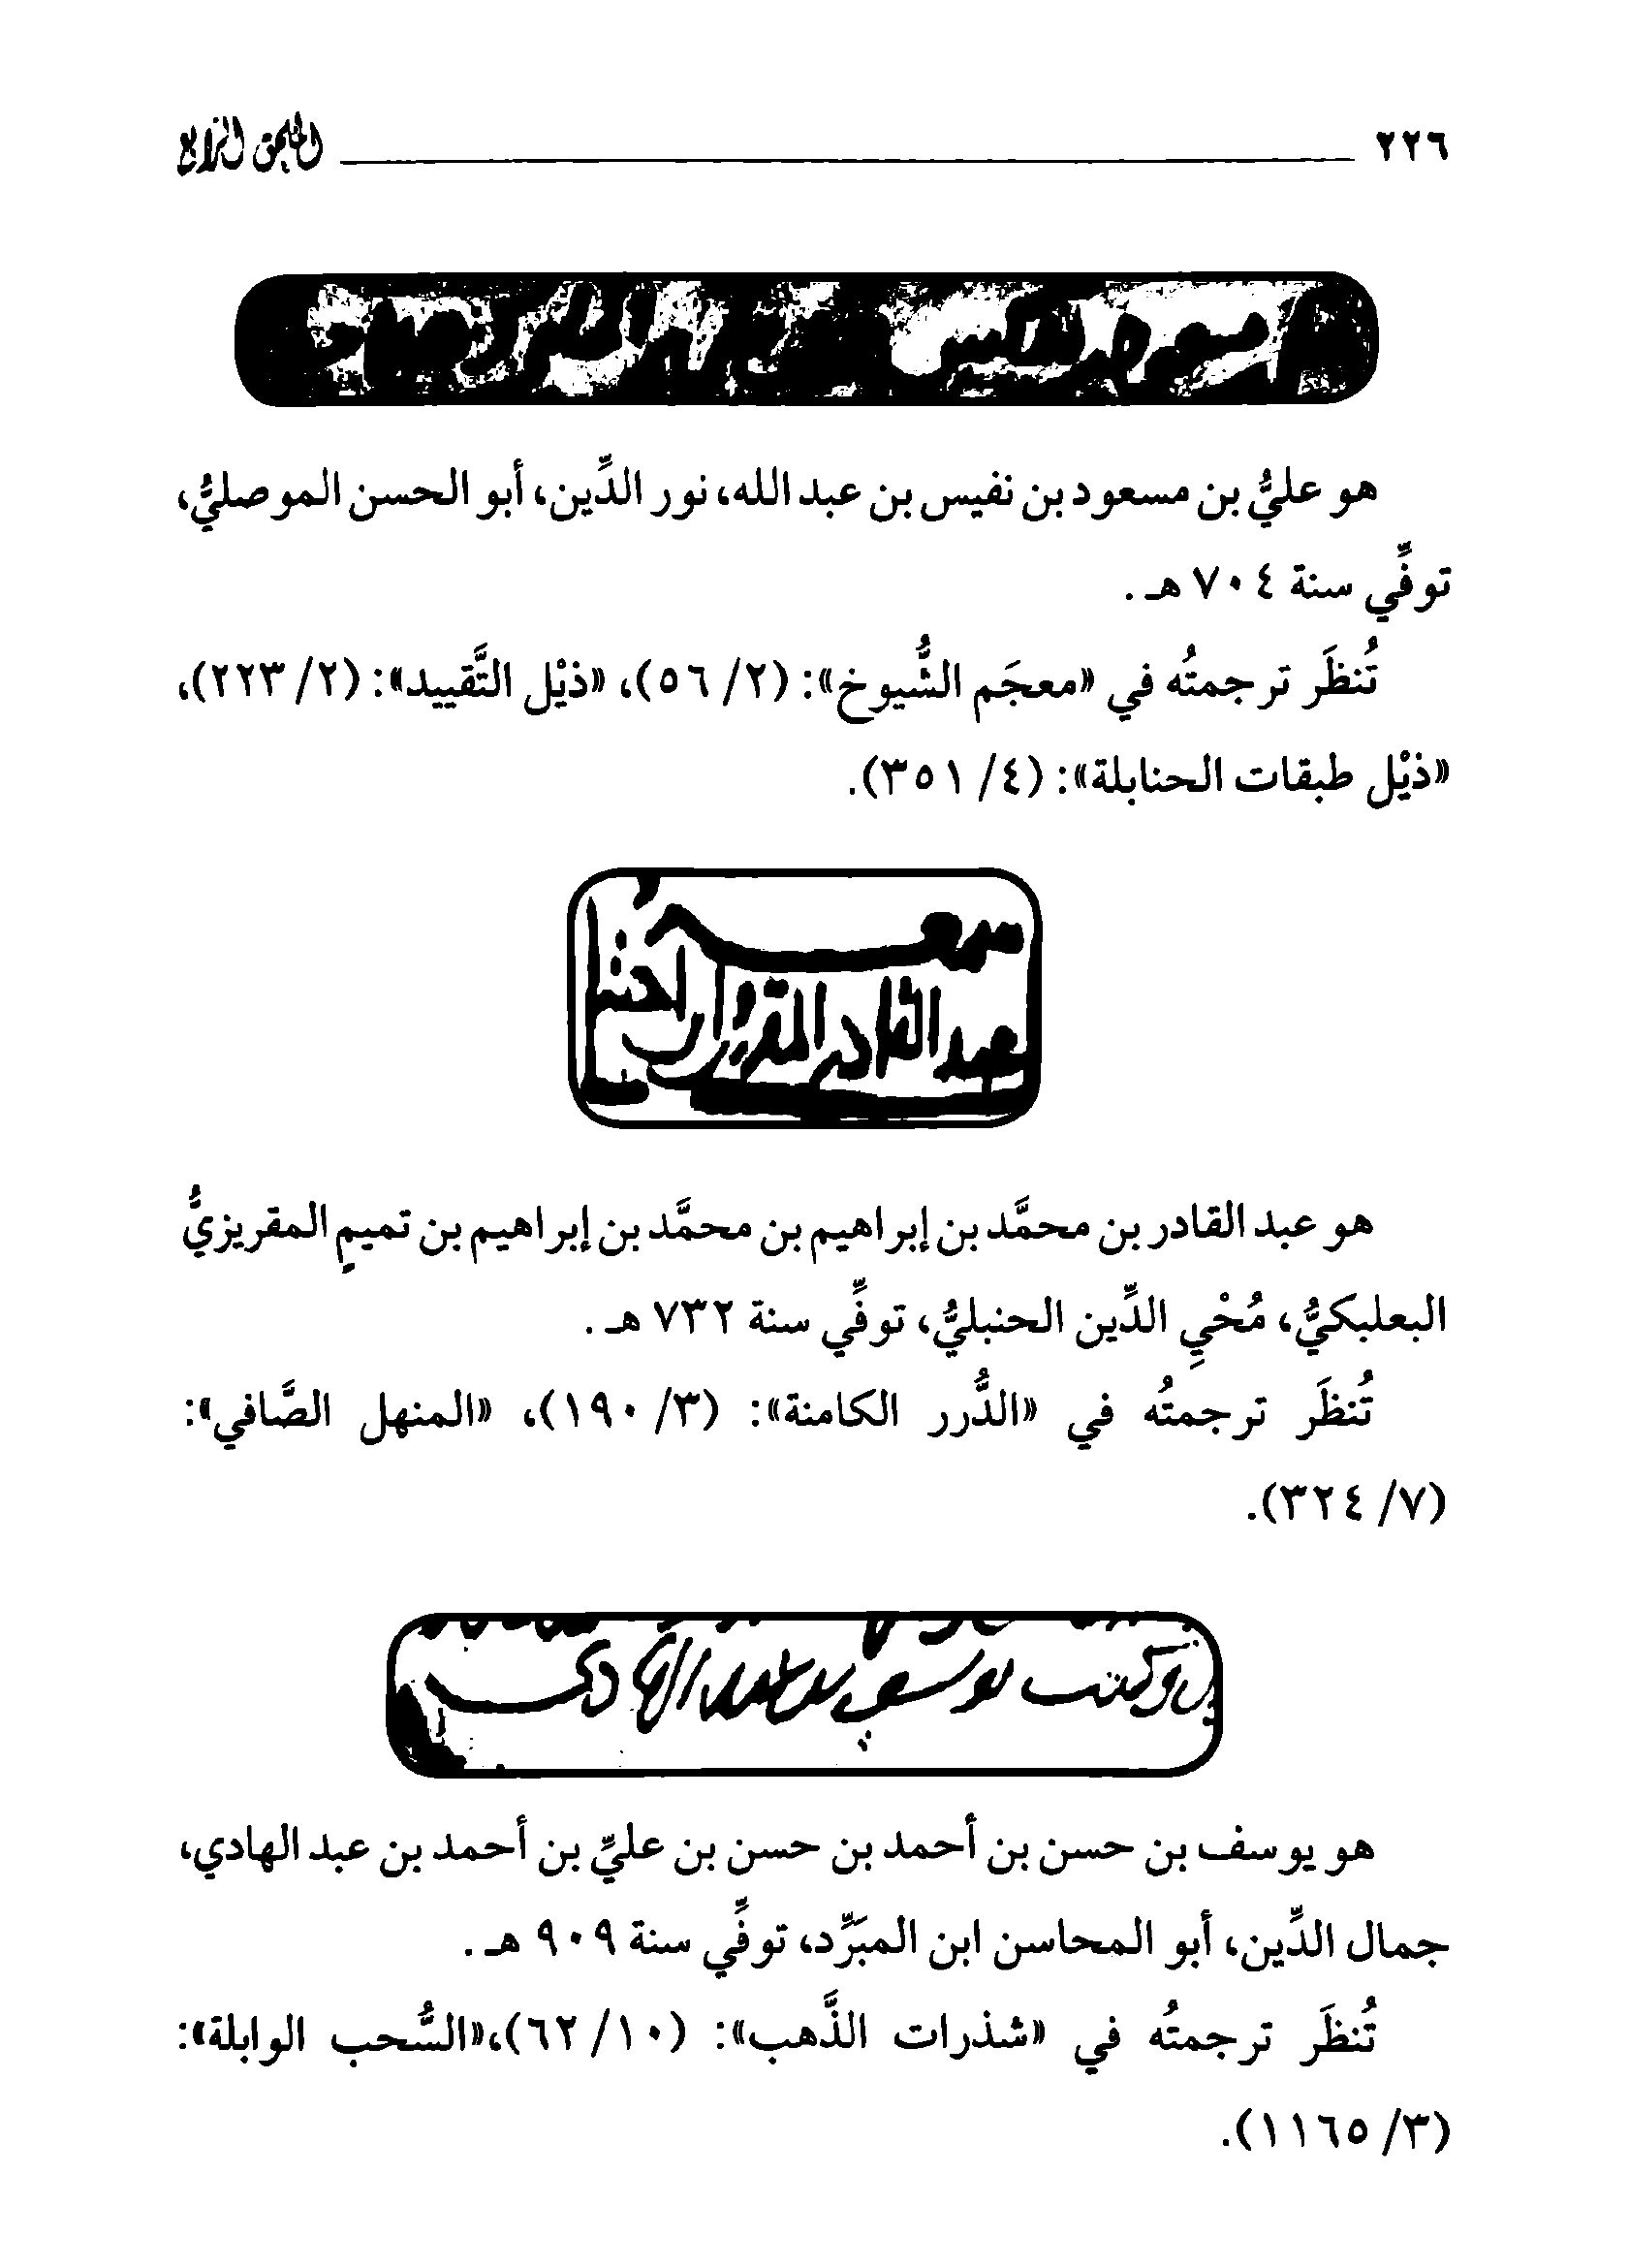 ٢٢٦
الملحق الرابع
هو عليُّ بن مسعود بن نفيس بن عبد الله، نور الدِّين، أبو الحسن الموصليُّ،
توفِّي سنة ٧٠٤ هـ .
تُنظَر ترجمتُه في «معجَم الشُّيوخ»: (٢/ ٥٦)، «ذيْل التَّقييد»: (٢/ ٢٢٣)،
«ذيْل طبقات الحنابلة»: (٤/ ٣٥١).
عبد القادر المقريزي
هو عبد القادر بن محمَّد بن إبراهيم بن محمَّد بن إبراهيم بن تميمٍ المقريزيُّ
البعلبكيُّ، مُحْيِ الدِّين الحنبليُّ، توفِّي سنة ٧٣٢ هـ .
تُنظَر ترجمتُه في «الدُّرر الكامنة»: (٣/ ١٩٠)، «المنهل الصَّافي»:
(٧/ ٣٢٤).
وكتب يوسف بن عبد الهادي
هو يوسف بن حسن بن أحمد بن حسن بن عليِّ بن أحمد بن عبد الهادي،
جمال الدِّين، أبو المحاسن ابن المبَرِّد، توفِّي سنة ٩٠٩ هـ .
تُنظَر ترجمتُه في «شذرات الذَّهب»: (١٠/ ٦٢)،«السُّحب الوابلة»:
(٣/ ١١٦٥).